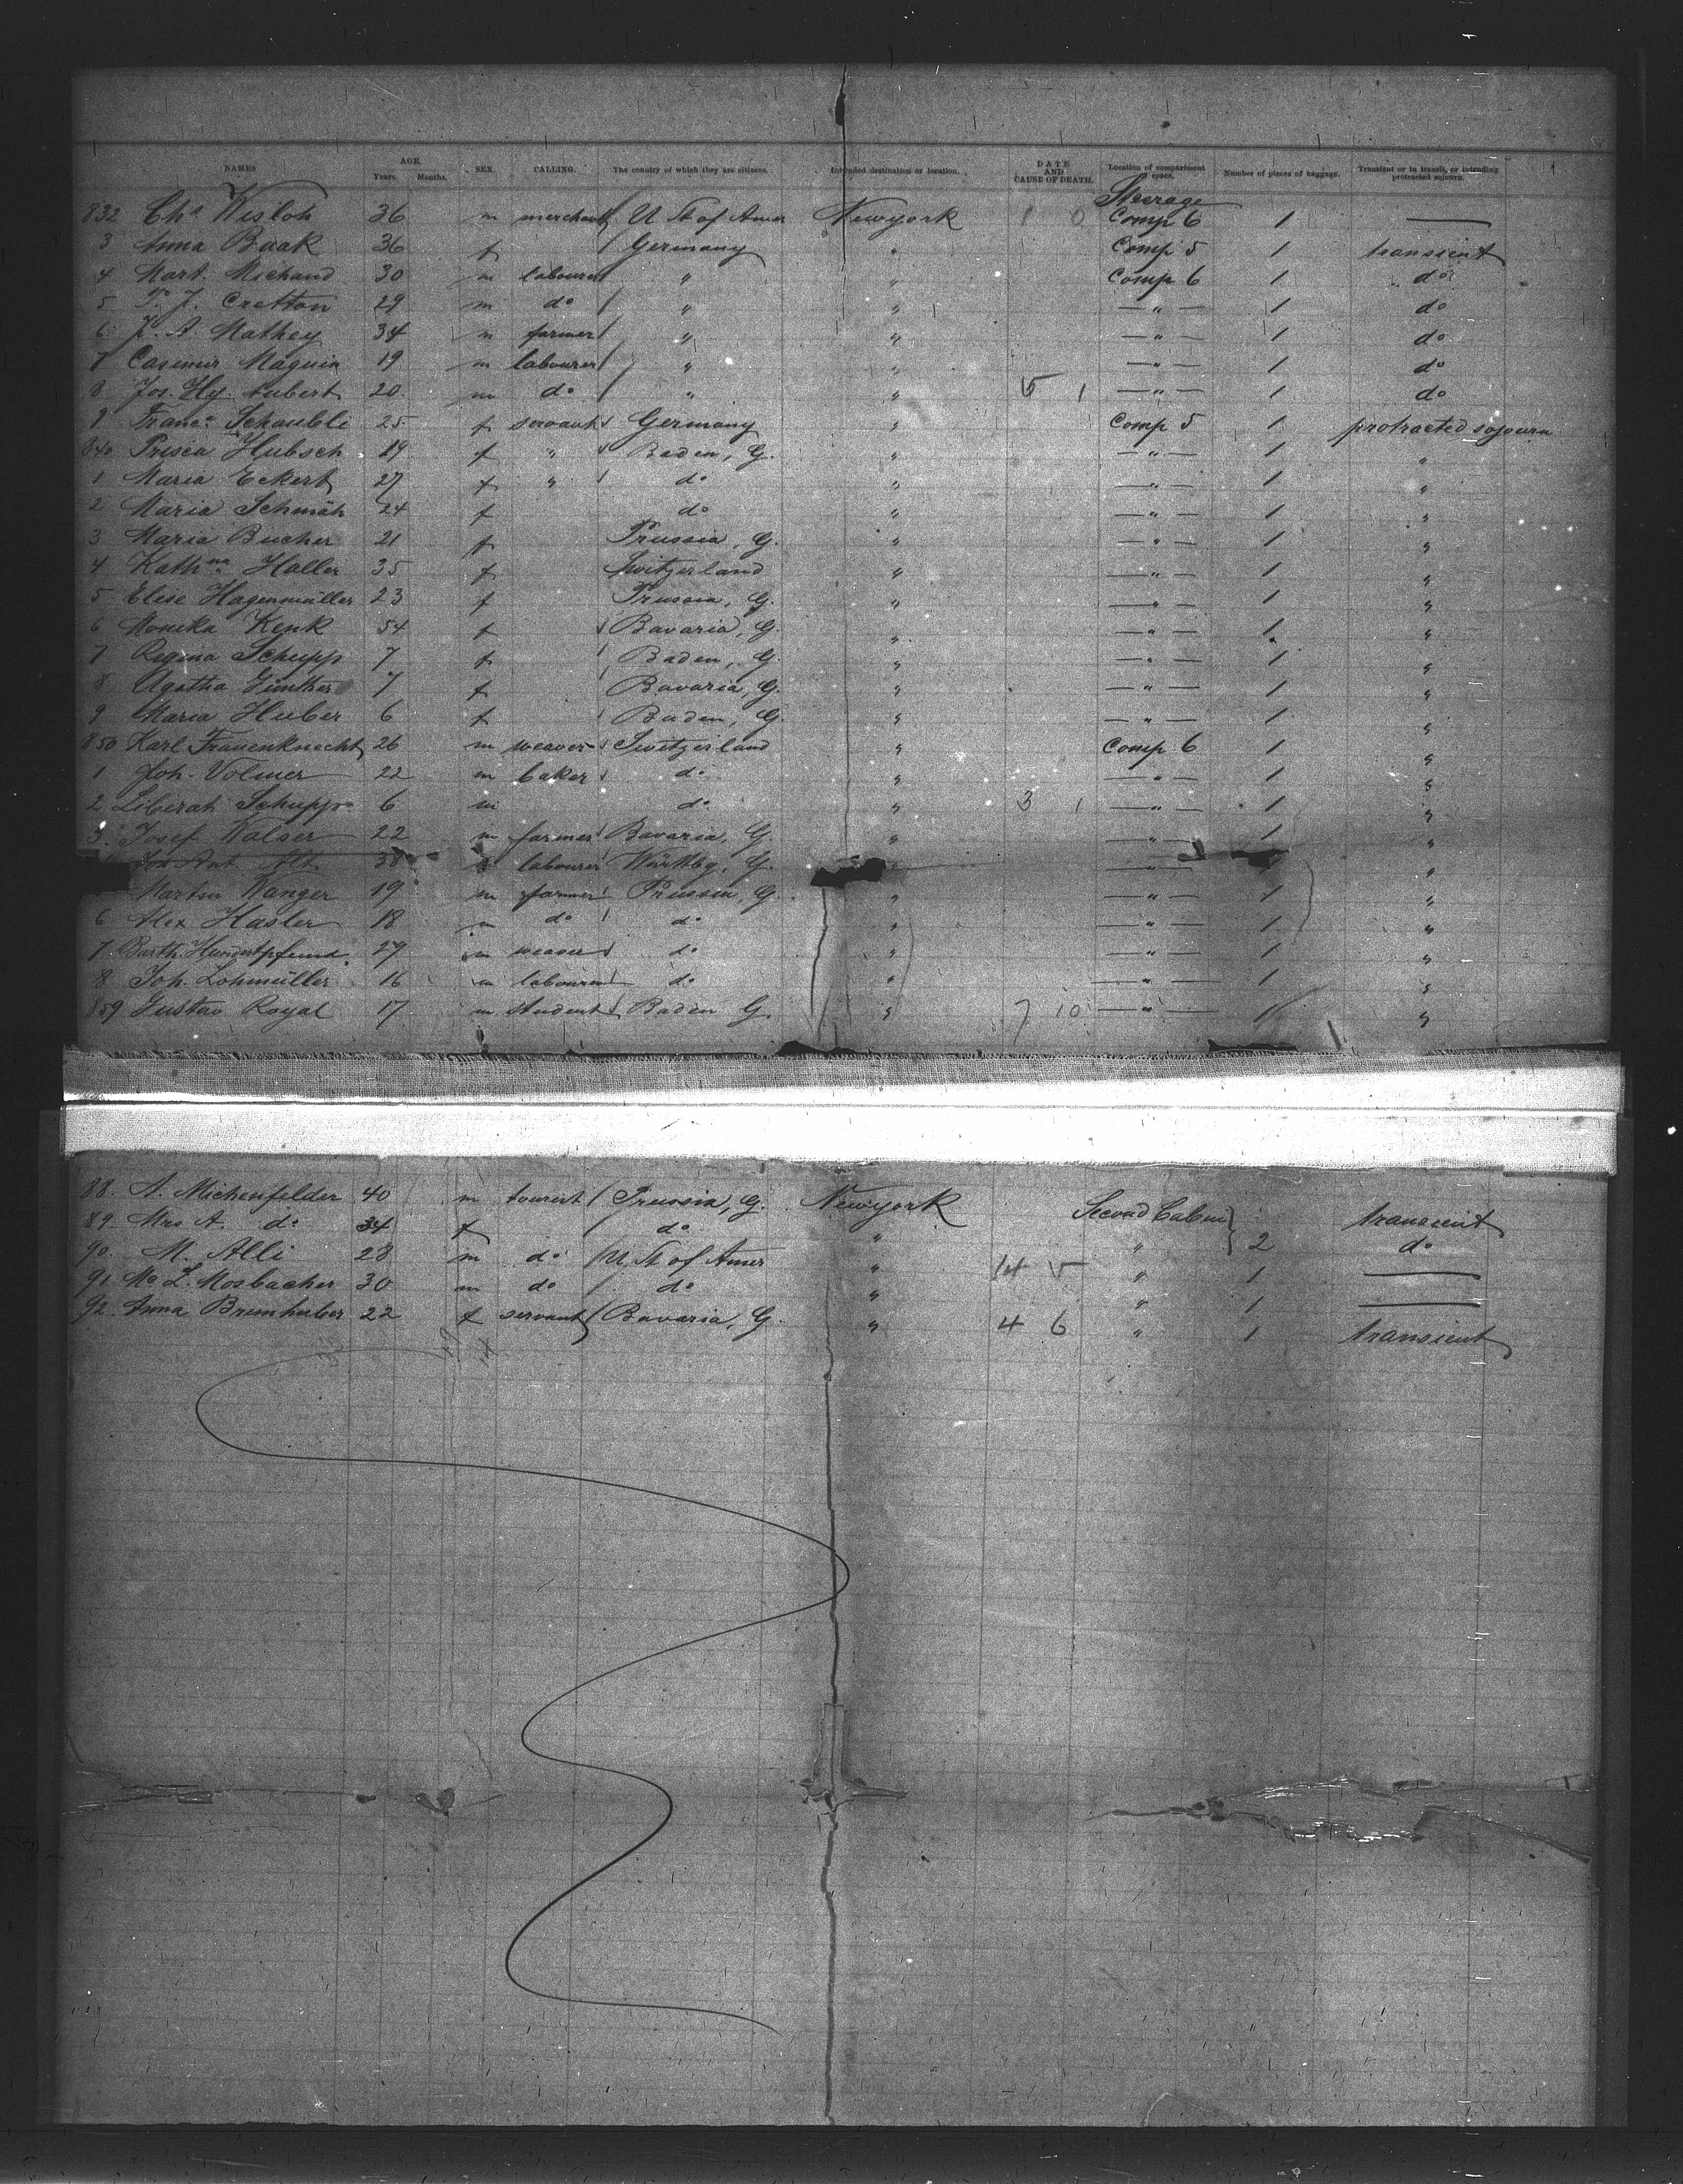 NAMES AGE. Years. Months. SEX. CALLING. The country of which they are citizens. Intended destination or location. DATE AND CAUSE OF DEATH. Location of compartment or space. Number of pieces of baggage. Transient or in transit, or intending protracted sojourn.
Steerage
832 Chs Wisloh 36 m merchant U St of Amer Newyork 1 0 Comp 6 1 —
3 Anna Baak 36 f Germany " Comp 5 1 transient
4 Mart. Michaud 30 m labourer " " Comp 6 1 do
5 J. Cretton 29 m do " " — " — 1 do
6 J. A. Mathey 34 m farmer " " — " — 1 do
7 Casimir Maquin 19 m labourer " " — " — 1 do
8 Jos. Hy. Aubert 20 m do " " 5 1 — " — 1 do
9 Franca Schaubli 25 f servant Germany " Comp 5 1 protracted sojourn
840 Prisca Hubsch 19 f " Baden, G. " — " — 1 "
1 Maria Eckert 27 f " do " — " — 1 "
2 Maria Schmäh 24 f do " — " — 1 "
3 Maria Bucher 21 f Prussia, G. " — " — 1 "
4 Kathna Haller 35 f Switzerland " — " — 1 "
5 Elise Hagenmüller 23 f Prussia, G. " — " — 1 "
6 Monika Kenk 54 f Bavaria, G. " — " — 1 "
7 Regina Schupp 7 f Baden, G. " — " — 1 "
8 Agatha Günther 7 f Bavaria, G. " — " — 1 "
9 Maria Huber 6 f Baden, G. " — " — 1 "
850 Karl Frauenknecht 26 m weaver Switzerland " Comp 6 1 "
1 Joh. Volmer 22 m baker do " — " — 1 "
2 Liberat Schupp 6 m do " 3 1 — " — 1 "
3 Josef Walser 22 m farmer Bavaria, G. " — " — 1 "
Joh Ant. Alt 38 labourer Württbg, G. " — " — "
Martin Wanger 19 m farmer Prussia, G. " — " — 1 "
6 Alex Hasler 18 m do do " — " — 1 "
7 Barth. Hundertpfund 29 m weaver do " — " — 1 "
8 Joh. Lohmüller 16 m labourer do " — " — 1 "
859 Gustav Royal 17 m student Baden G. " 7 10 — " — 1 "
88. A. Michenfelder 40 m tourist Prussia, G. Newyork Second Cabin transient
89. Mrs A. do 34 f do " " 2 do
90. M. Alli 28 m do U. St of Amer " 14 5 " 1 —
91 L. Mosbacher 30 m do do " " 1 —
92. Anna Brunhuber 22 f servant Bavaria, G. " 4 6 " 1 transient